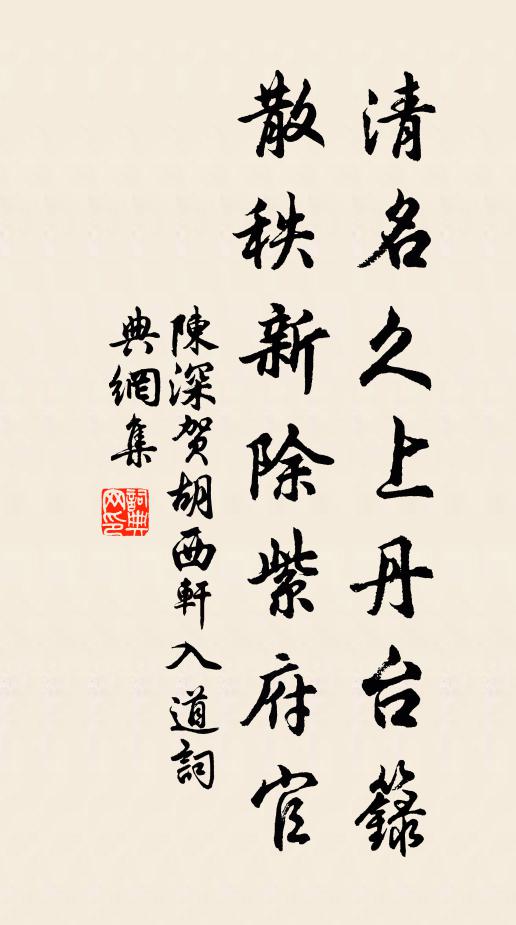 清名久上丹台籙
散秩新除紫府官
陳深賀胡西軒入道詞
典網集
詞典网印